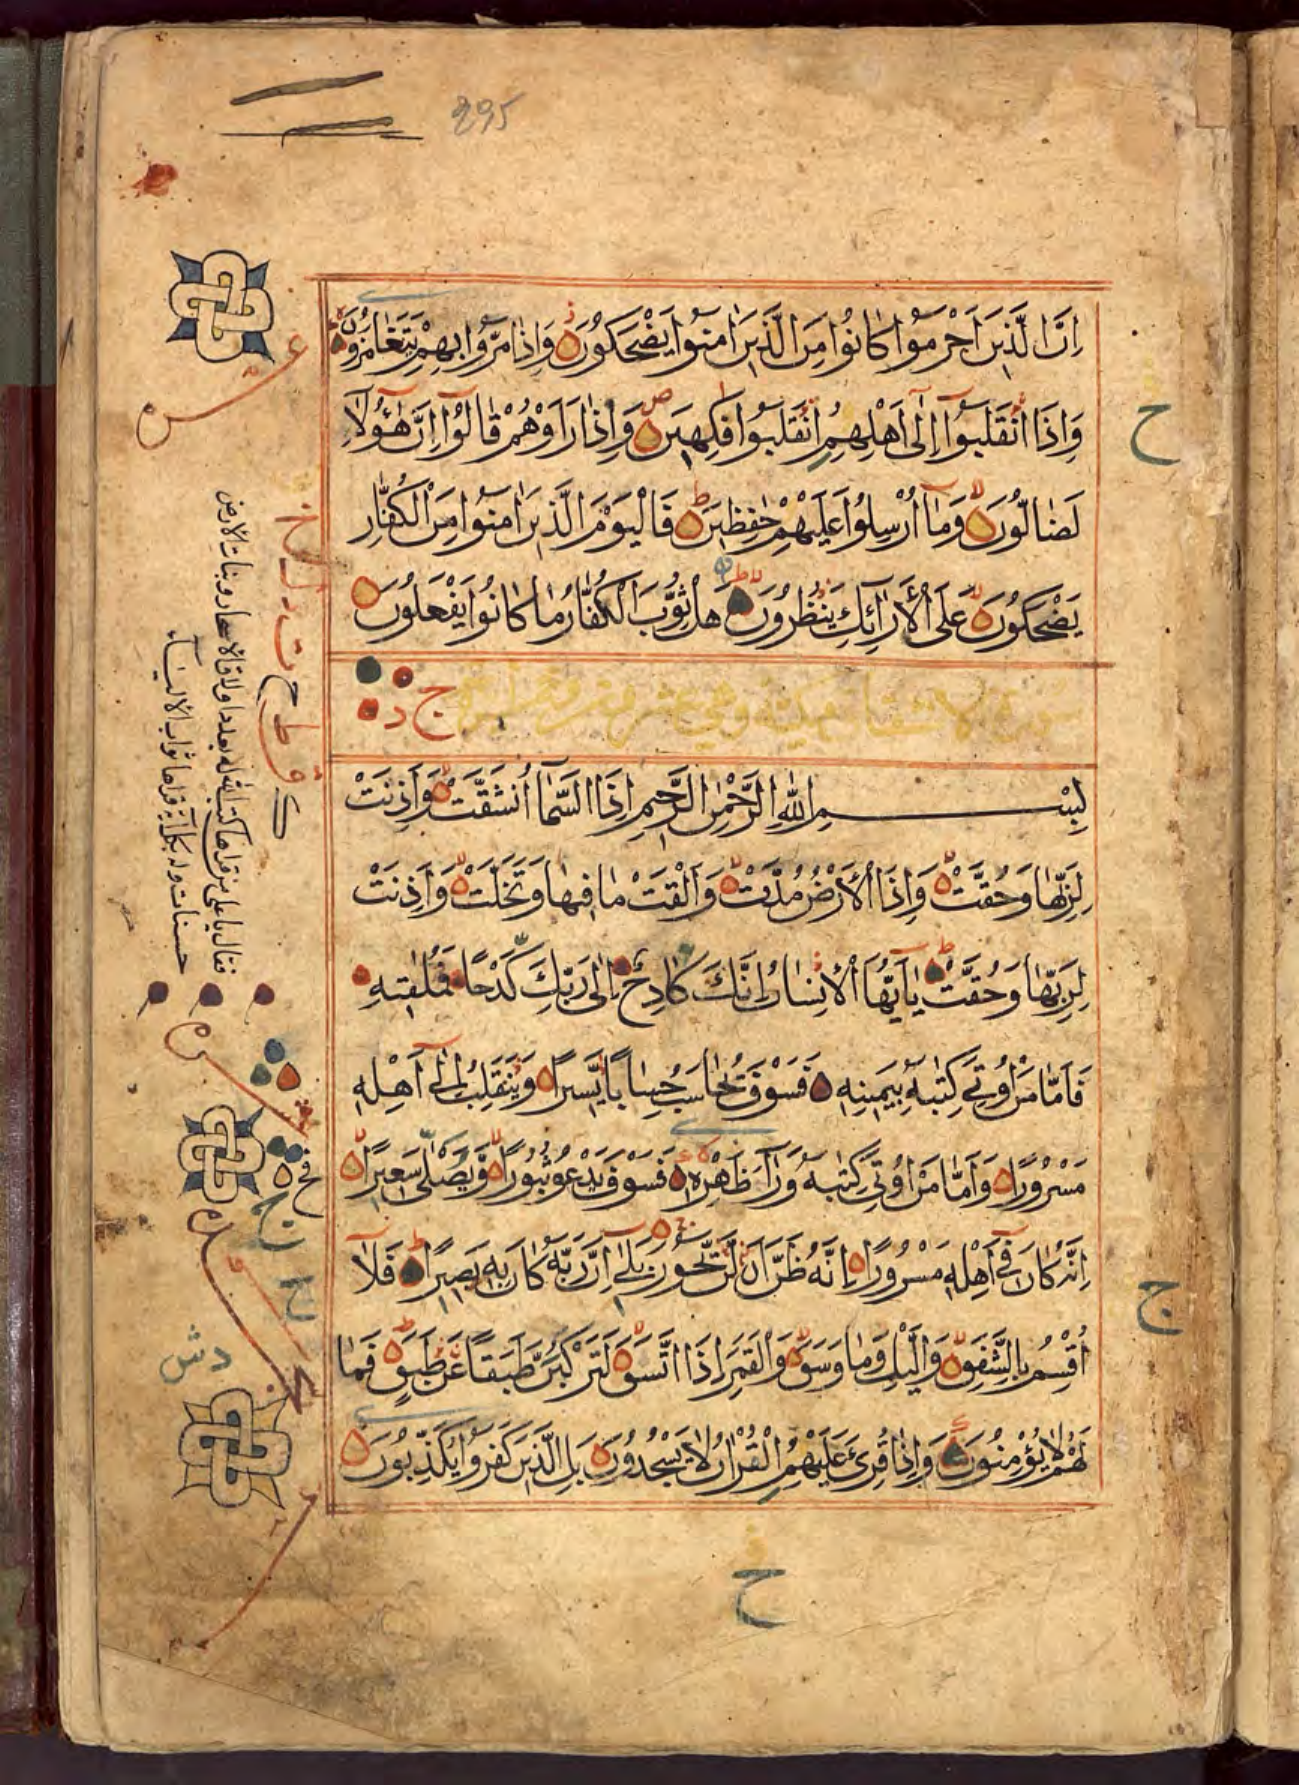 295
اِنَّ الَّذِينَ اَجْرَمُوا كَانُوا مِنَ الَّذِينَ اٰمَنُوا يَضْحَكُونَ وَاِذَا مَرُّوا بِهِمْ يَتَغَامَزُونَ
وَاِذَا انْقَلَبُوٓا اِلٰٓى اَهْلِهِمُ انْقَلَبُوا فَكِهِينَ وَاِذَا رَاَوْهُمْ قَالُوٓا اِنَّ هٰٓؤُلَآءِ
لَضَالُّونَ وَمَآ اُرْسِلُوا عَلَيْهِمْ حٰفِظِينَ فَالْيَوْمَ الَّذِينَ اٰمَنُوا مِنَ الْكُفَّارِ
يَضْحَكُونَ عَلَى الْاَرَآئِكِ يَنْظُرُونَ هَلْ ثُوِّبَ الْكُفَّارُ مَا كَانُوا يَفْعَلُونَ
سورة الانشقاق مكية وهي عشرون
بِسْمِ اللّٰهِ الرَّحْمٰنِ الرَّحِيمِ اِذَا السَّمَآءُ انْشَقَّتْ وَاَذِنَتْ
لِرَبِّهَا وَحُقَّتْ وَاِذَا الْاَرْضُ مُدَّتْ وَاَلْقَتْ مَا فِيهَا وَتَخَلَّتْ وَاَذِنَتْ
لِرَبِّهَا وَحُقَّتْ يَآ اَيُّهَا الْاِنْسَانُ اِنَّكَ كَادِحٌ اِلٰى رَبِّكَ كَدْحًا فَمُلٰقِيهِ
فَاَمَّا مَنْ اُوتِيَ كِتٰبَهُ بِيَمِينِهِ فَسَوْفَ يُحَاسَبُ حِسَابًا يَسِيرًا وَيَنْقَلِبُ اِلٰٓى اَهْلِهِ
مَسْرُورًا وَاَمَّا مَنْ اُوتِيَ كِتٰبَهُ وَرَآءَ ظَهْرِهِ فَسَوْفَ يَدْعُو ثُبُورًا وَيُصَلّٰى سَعِيرًا
اِنَّهُ كَانَ فِيٓ اَهْلِهِ مَسْرُورًا اِنَّهُ ظَنَّ اَنْ لَنْ يَحُورَ بَلٰٓى اِنَّ رَبَّهُ كَانَ بِهِ بَصِيرًا فَلَآ
اُقْسِمُ بِالشَّفَقِ وَالَّيْلِ وَمَا وَسَقَ وَالْقَمَرِ اِذَا اتَّسَقَ لَتَرْكَبُنَّ طَبَقًا عَنْ طَبَقٍ فَمَا
لَهُمْ لَا يُؤْمِنُونَ وَاِذَا قُرِئَ عَلَيْهِمُ الْقُرْاٰنُ لَا يَسْجُدُونَ بَلِ الَّذِينَ كَفَرُوا يُكَذِّبُونَ
فقال يا علي من قراها كتب الله له بعدد اوراق الاشجار ونبات الارض
حسنات وله بكل اية قراها ثواب
ح
ج
ح
دش